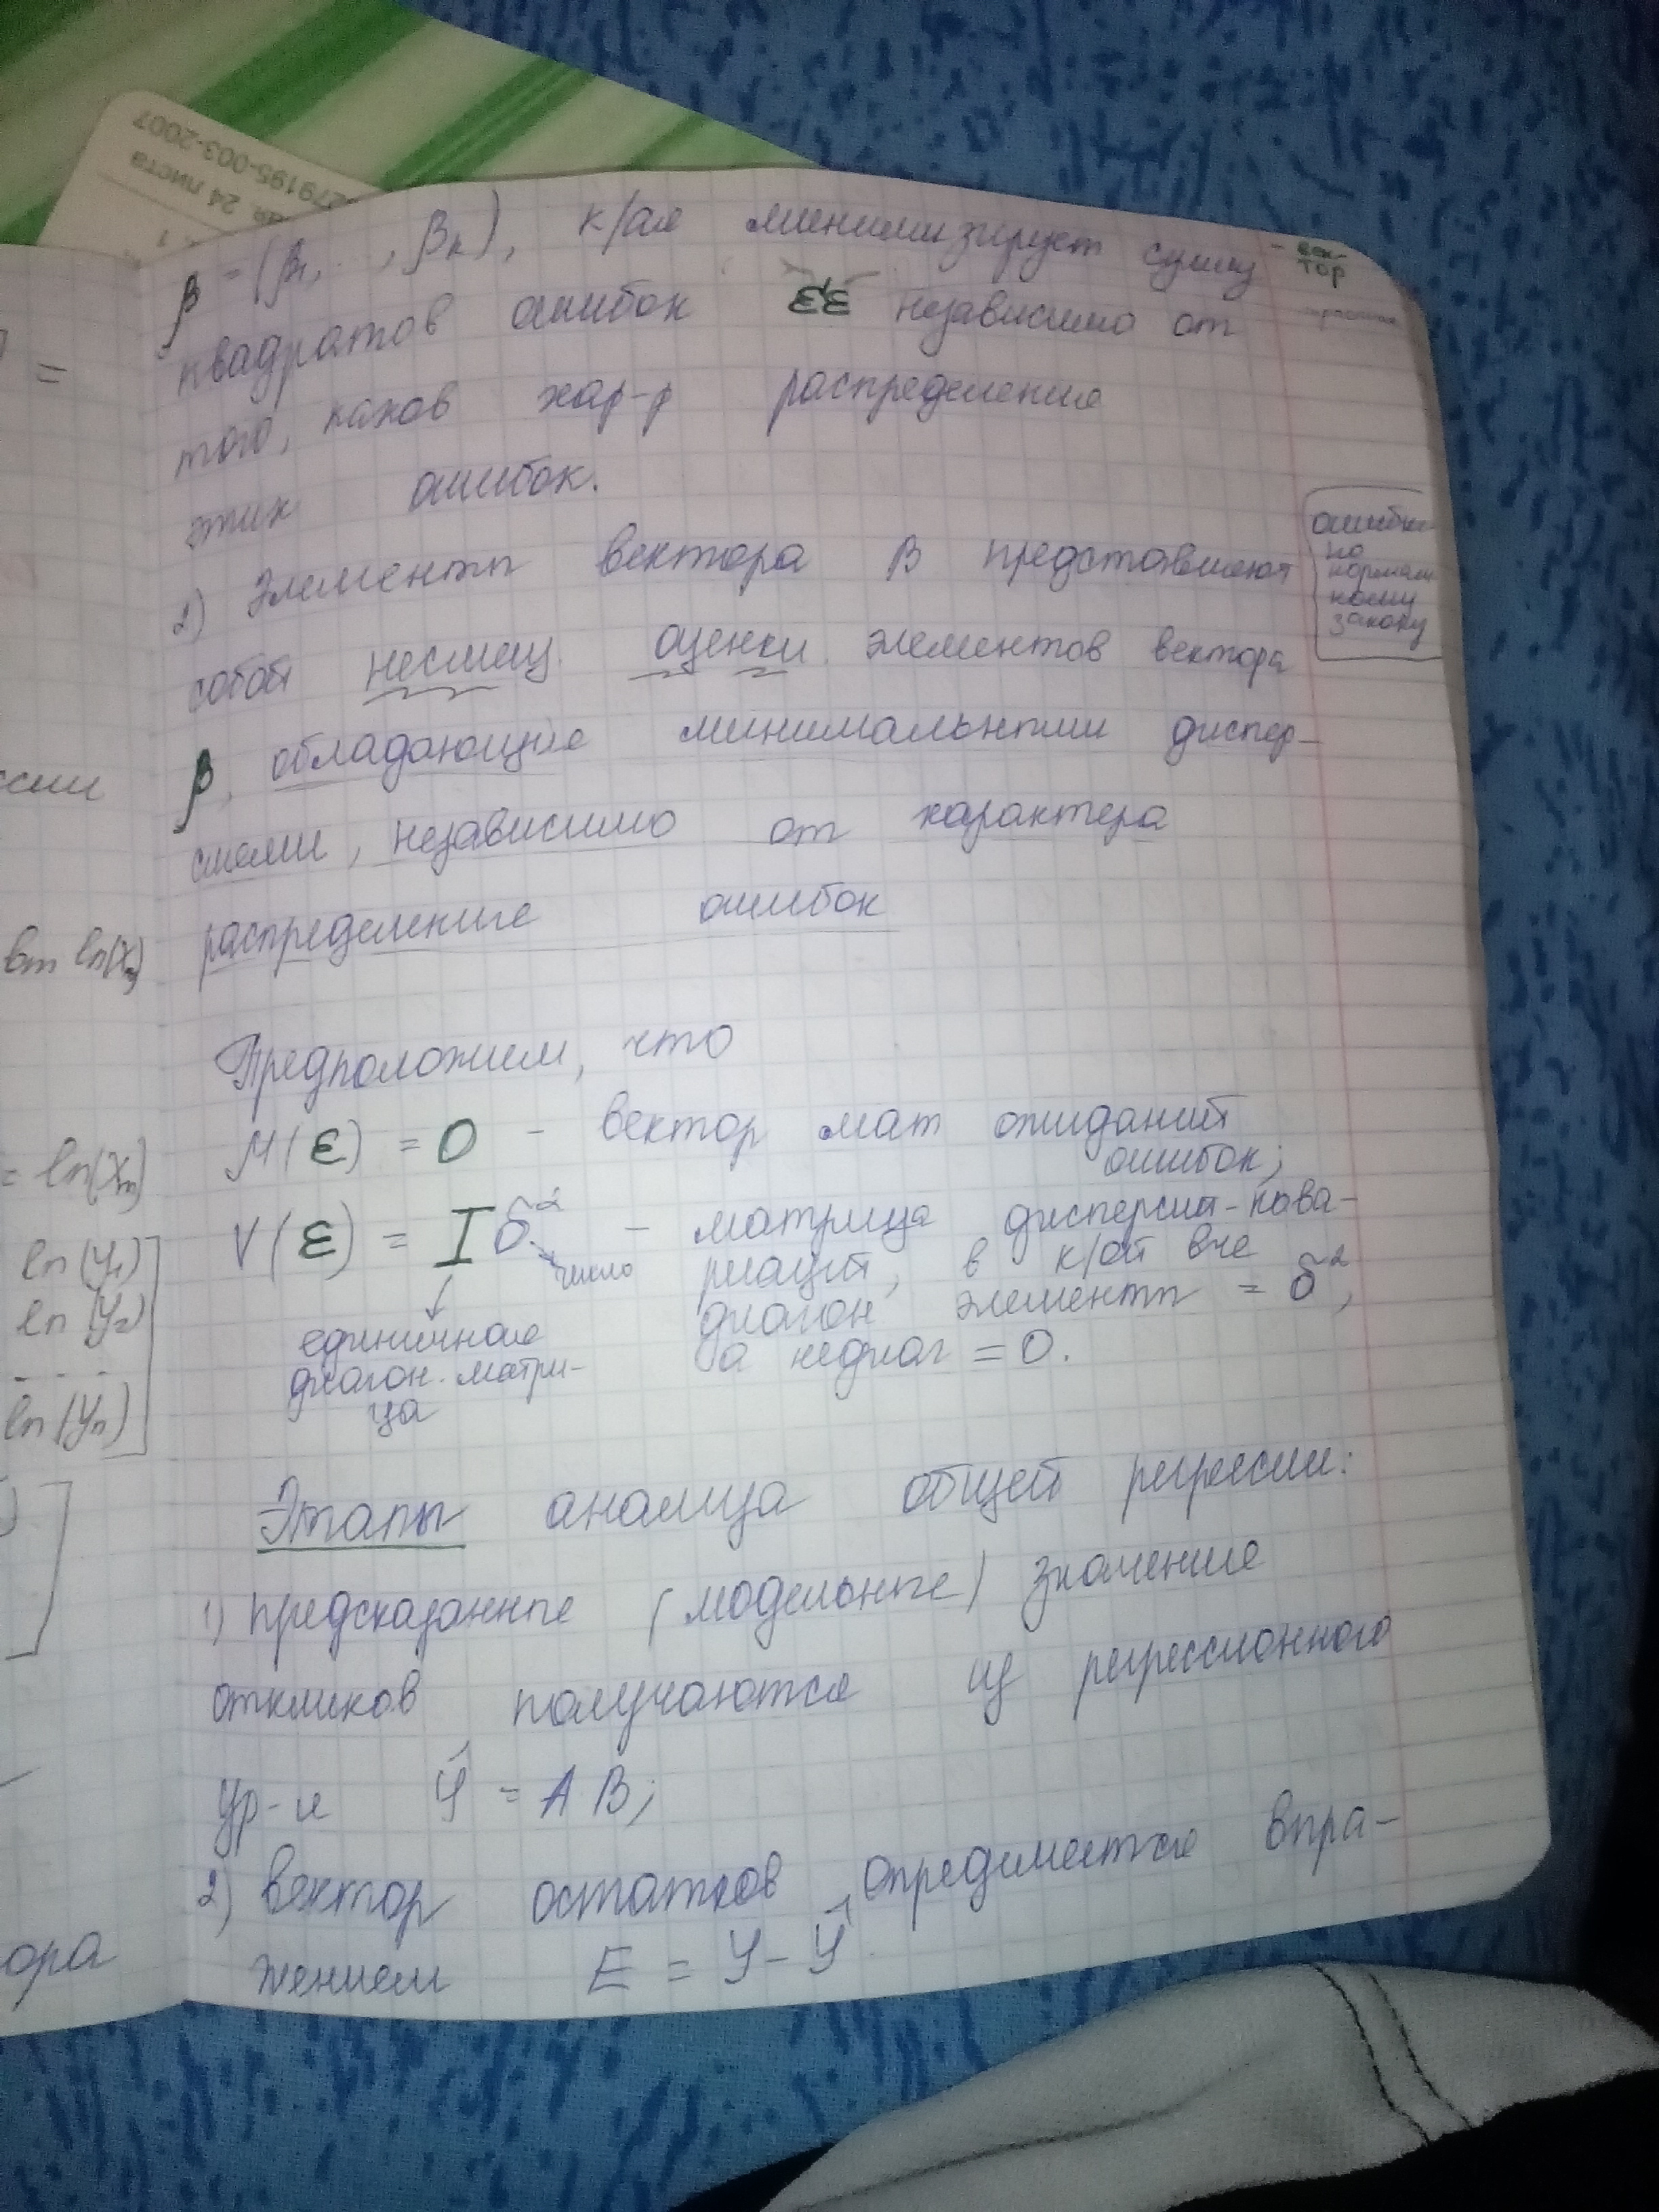 279195-003-2007
24 листа
β = (β₁, ..., βₖ), к/ая минимизирует сумму
квадратов ошибок ε'ε независимо от
того, каков хар-р распределения
этих ошибок.
- век-
тор
2) Элементы вектора B представляют
собой несмещ. оценки элементов вектора
β, обладающие минимальными диспер-
сиями, независимо от характера
распределение ошибок
ошибки
по
нормаль
ному
закону
Предположим, что
M(ε) = 0 - вектор мат ожиданий
ошибок;
V(ε) = I σ² - матрица дисперсий-кова-
риаций, в к/ой все
диагон элементы = σ²,
а недиаг = 0.
число
единичная
диагон. матри-
ца
Этапы анализа общей регрессии:
1) предсказанные (модельные) значение
откликов получаются из регрессионного
ур-я Ŷ = A B;
2) вектор остатков определяется выра-
жением E = Y - Ŷ
=
ссии
ln(Xₙ)
= ln(Xₙ)
ln(y₁)
ln(y₂)
- - -
ln(yₙ)
ора